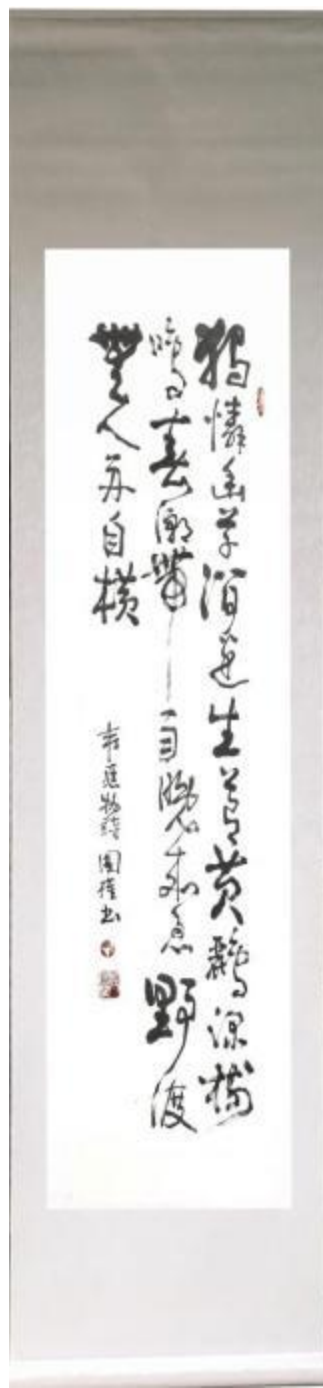 獨憐幽草澗邊生上有黃鸝深樹
鳴春潮帶雨晚来急野渡
無人舟自橫
韋應物詩國權書